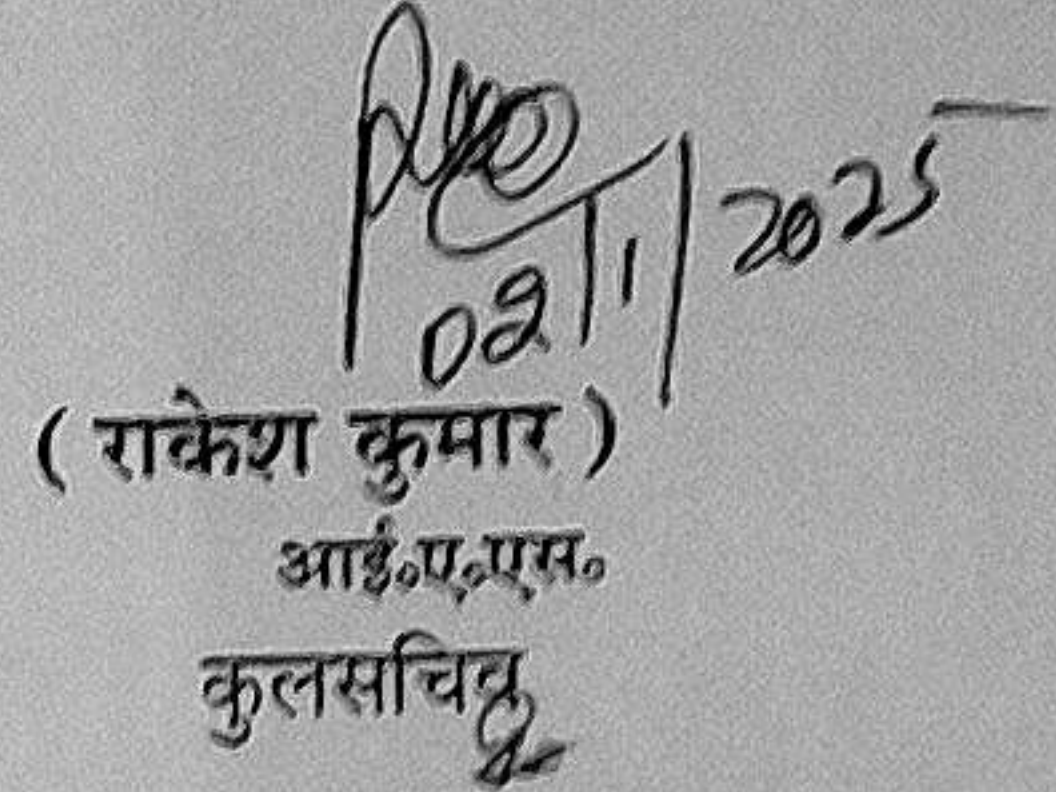 02/1/2025
(राकेश कुमार)
आई०ए०एस०
कुलसचिव